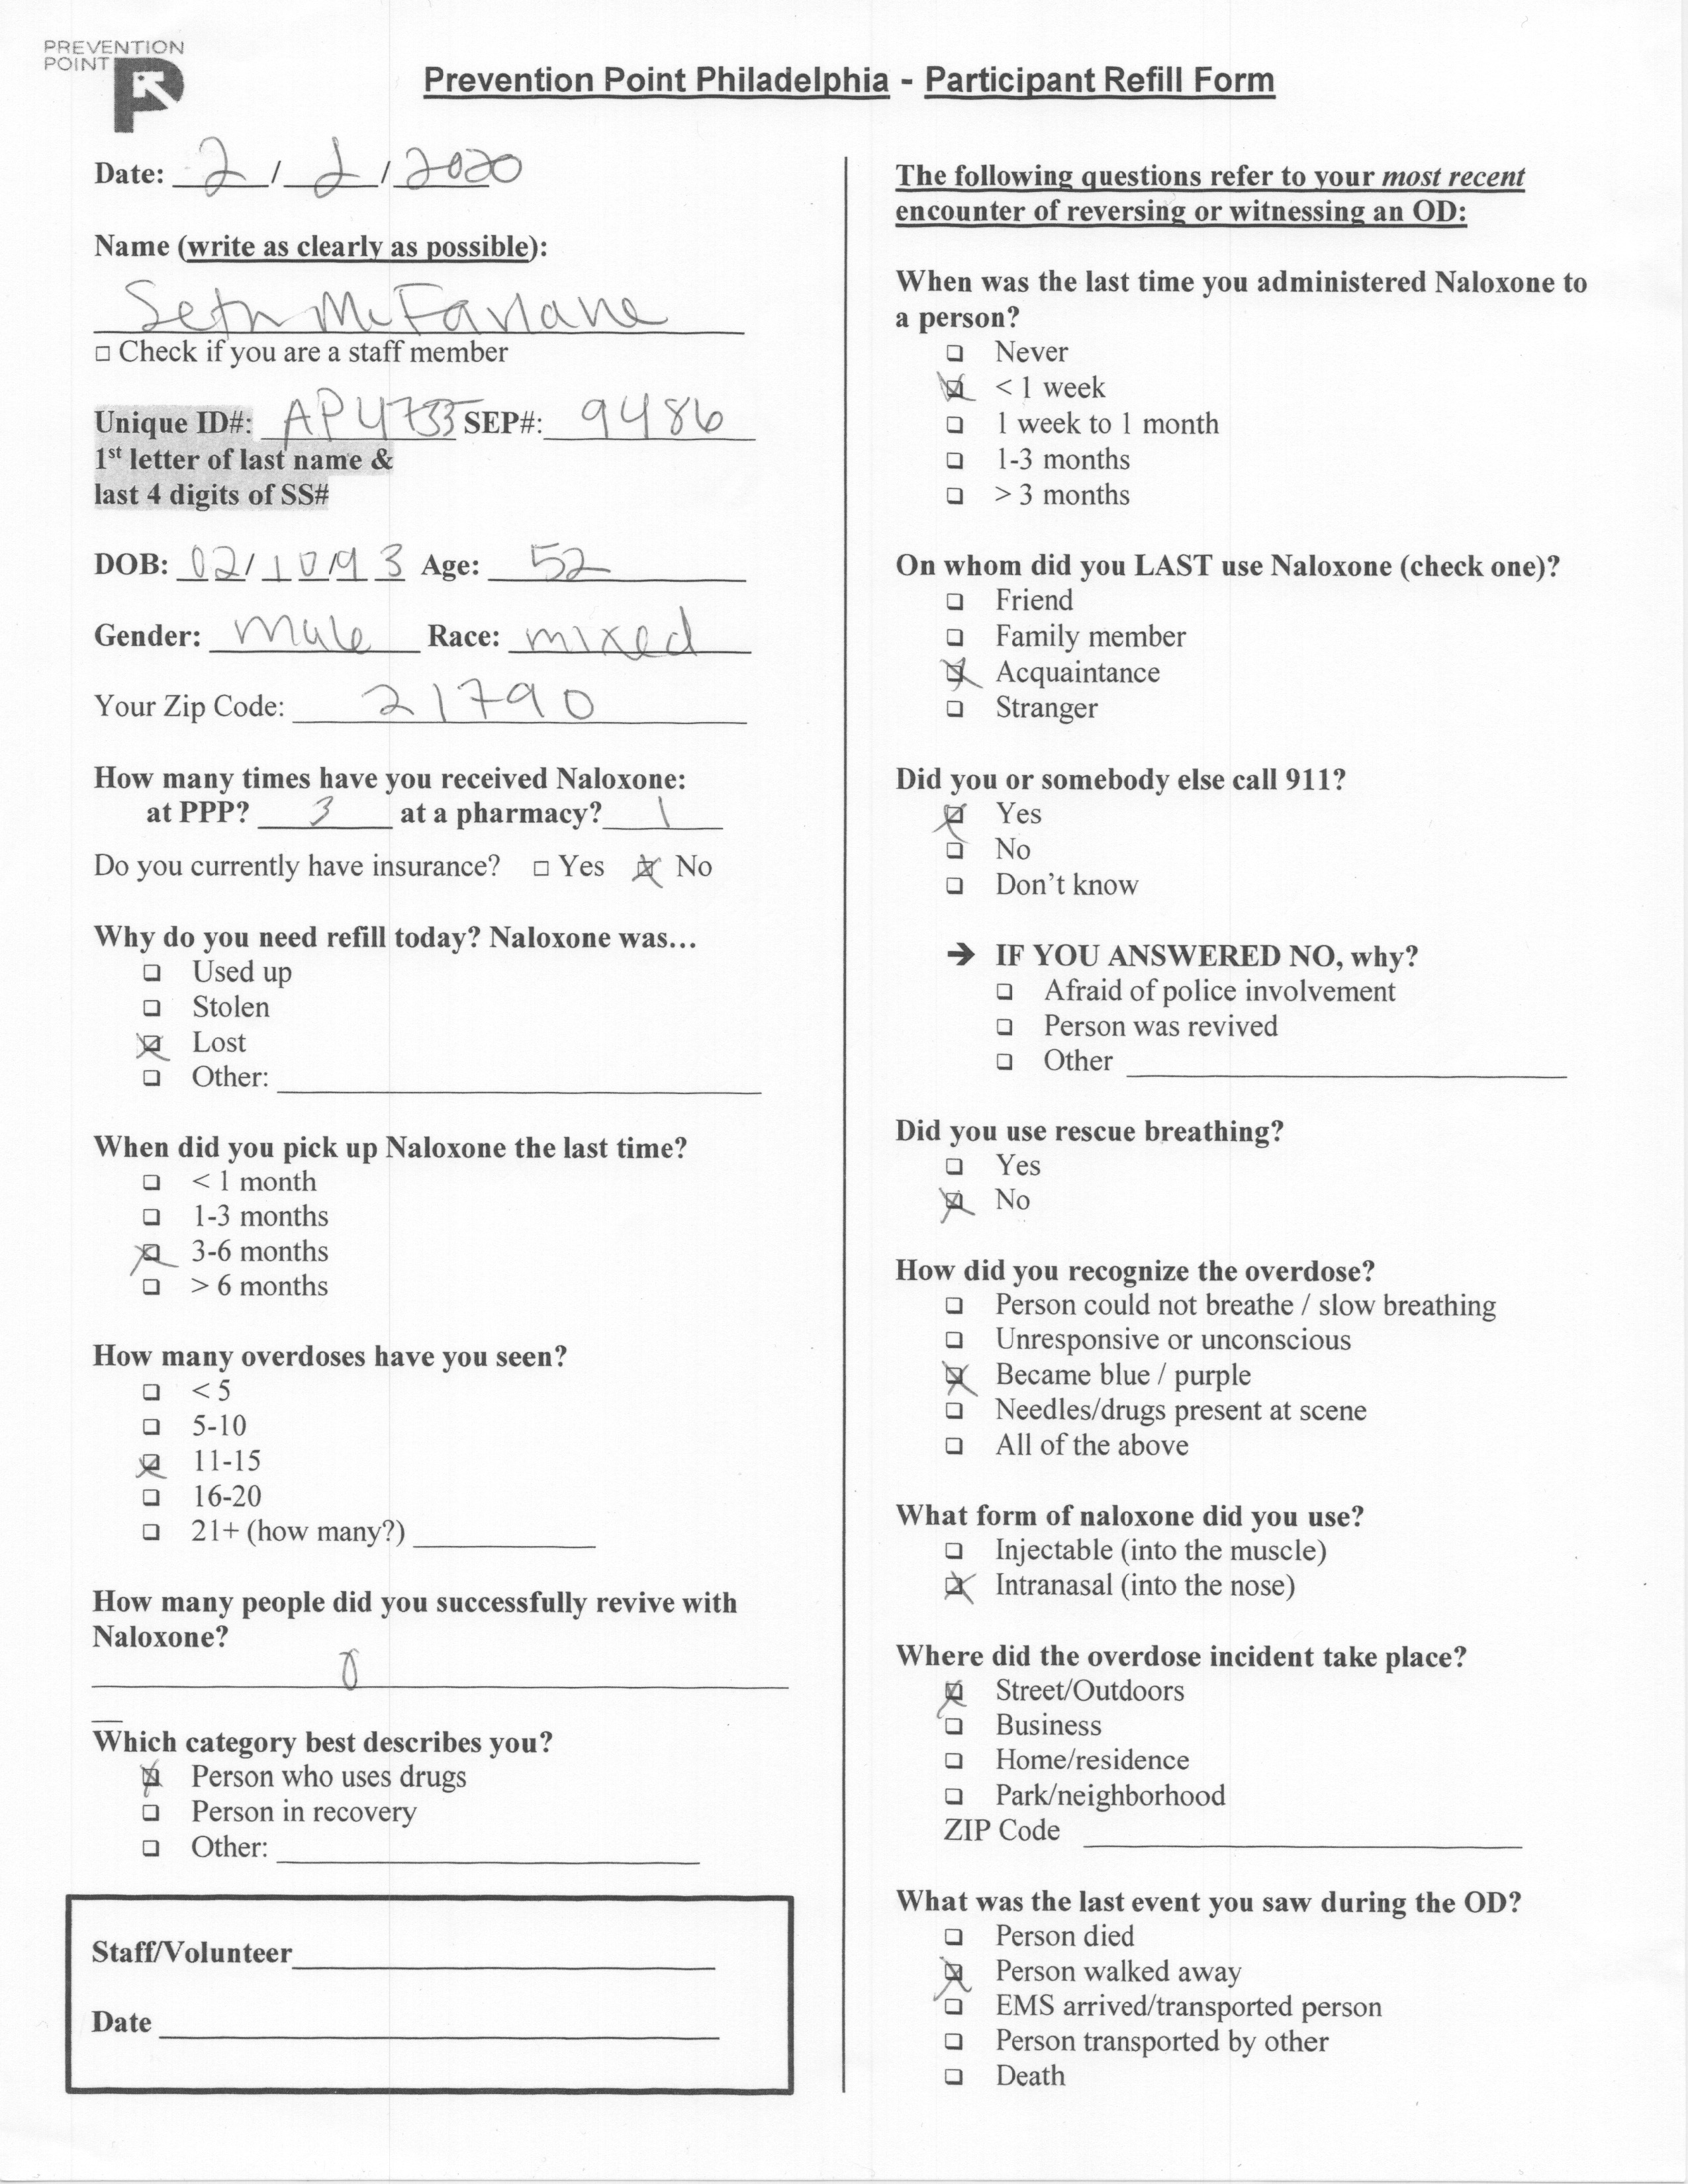 PREVENTION
POINT
Prevention Point Philadelphia - Participant Refill Form
Date: 2 / 2 / 2020
Name (write as clearly as possible):
Seth McFarlane
☐ Check if you are a staff member
Unique ID#: AP4733 SEP#: 9486
1st letter of last name &
last 4 digits of SS#
DOB: 02/10/93 Age: 52
Gender: Male Race: mixed
Your Zip Code: 21790
How many times have you received Naloxone:
at PPP? 3 at a pharmacy? 1
Do you currently have insurance? ☐ Yes ☒ No
Why do you need refill today? Naloxone was…
☐ Used up
☐ Stolen
☒ Lost
☐ Other:
When did you pick up Naloxone the last time?
☐ < 1 month
☐ 1-3 months
☒ 3-6 months
☐ > 6 months
How many overdoses have you seen?
☐ < 5
☐ 5-10
☒ 11-15
☐ 16-20
☐ 21+ (how many?)
How many people did you successfully revive with
Naloxone?
0
Which category best describes you?
☒ Person who uses drugs
☐ Person in recovery
☐ Other:
Staff/Volunteer
Date
The following questions refer to your most recent
encounter of reversing or witnessing an OD:
When was the last time you administered Naloxone to
a person?
☐ Never
☒ < 1 week
☐ 1 week to 1 month
☐ 1-3 months
☐ > 3 months
On whom did you LAST use Naloxone (check one)?
☐ Friend
☐ Family member
☒ Acquaintance
☐ Stranger
Did you or somebody else call 911?
☒ Yes
☐ No
☐ Don't know
➔ IF YOU ANSWERED NO, why?
☐ Afraid of police involvement
☐ Person was revived
☐ Other
Did you use rescue breathing?
☐ Yes
☒ No
How did you recognize the overdose?
☐ Person could not breathe / slow breathing
☐ Unresponsive or unconscious
☒ Became blue / purple
☐ Needles/drugs present at scene
☐ All of the above
What form of naloxone did you use?
☐ Injectable (into the muscle)
☒ Intranasal (into the nose)
Where did the overdose incident take place?
☒ Street/Outdoors
☐ Business
☐ Home/residence
☐ Park/neighborhood
ZIP Code
What was the last event you saw during the OD?
☐ Person died
☒ Person walked away
☐ EMS arrived/transported person
☐ Person transported by other
☐ Death